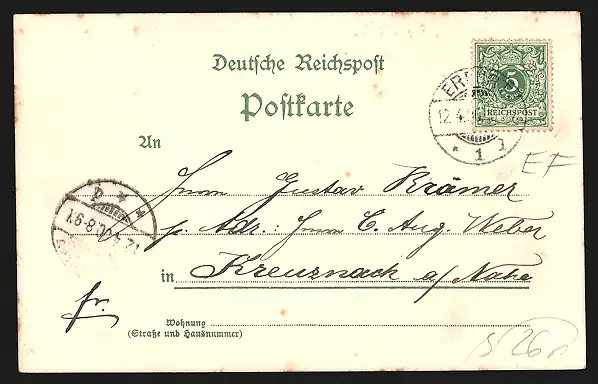 Deutsche Reichspost
Postkarte
5
REICHSPOST
12.4.
1
EF
An
Herrn Gustav Krämer
p. Adr: Herrn C. Aug. Weber
in Kreuznach a/Nahe
fr.
Wohnung
(Straße und Hausnummer)